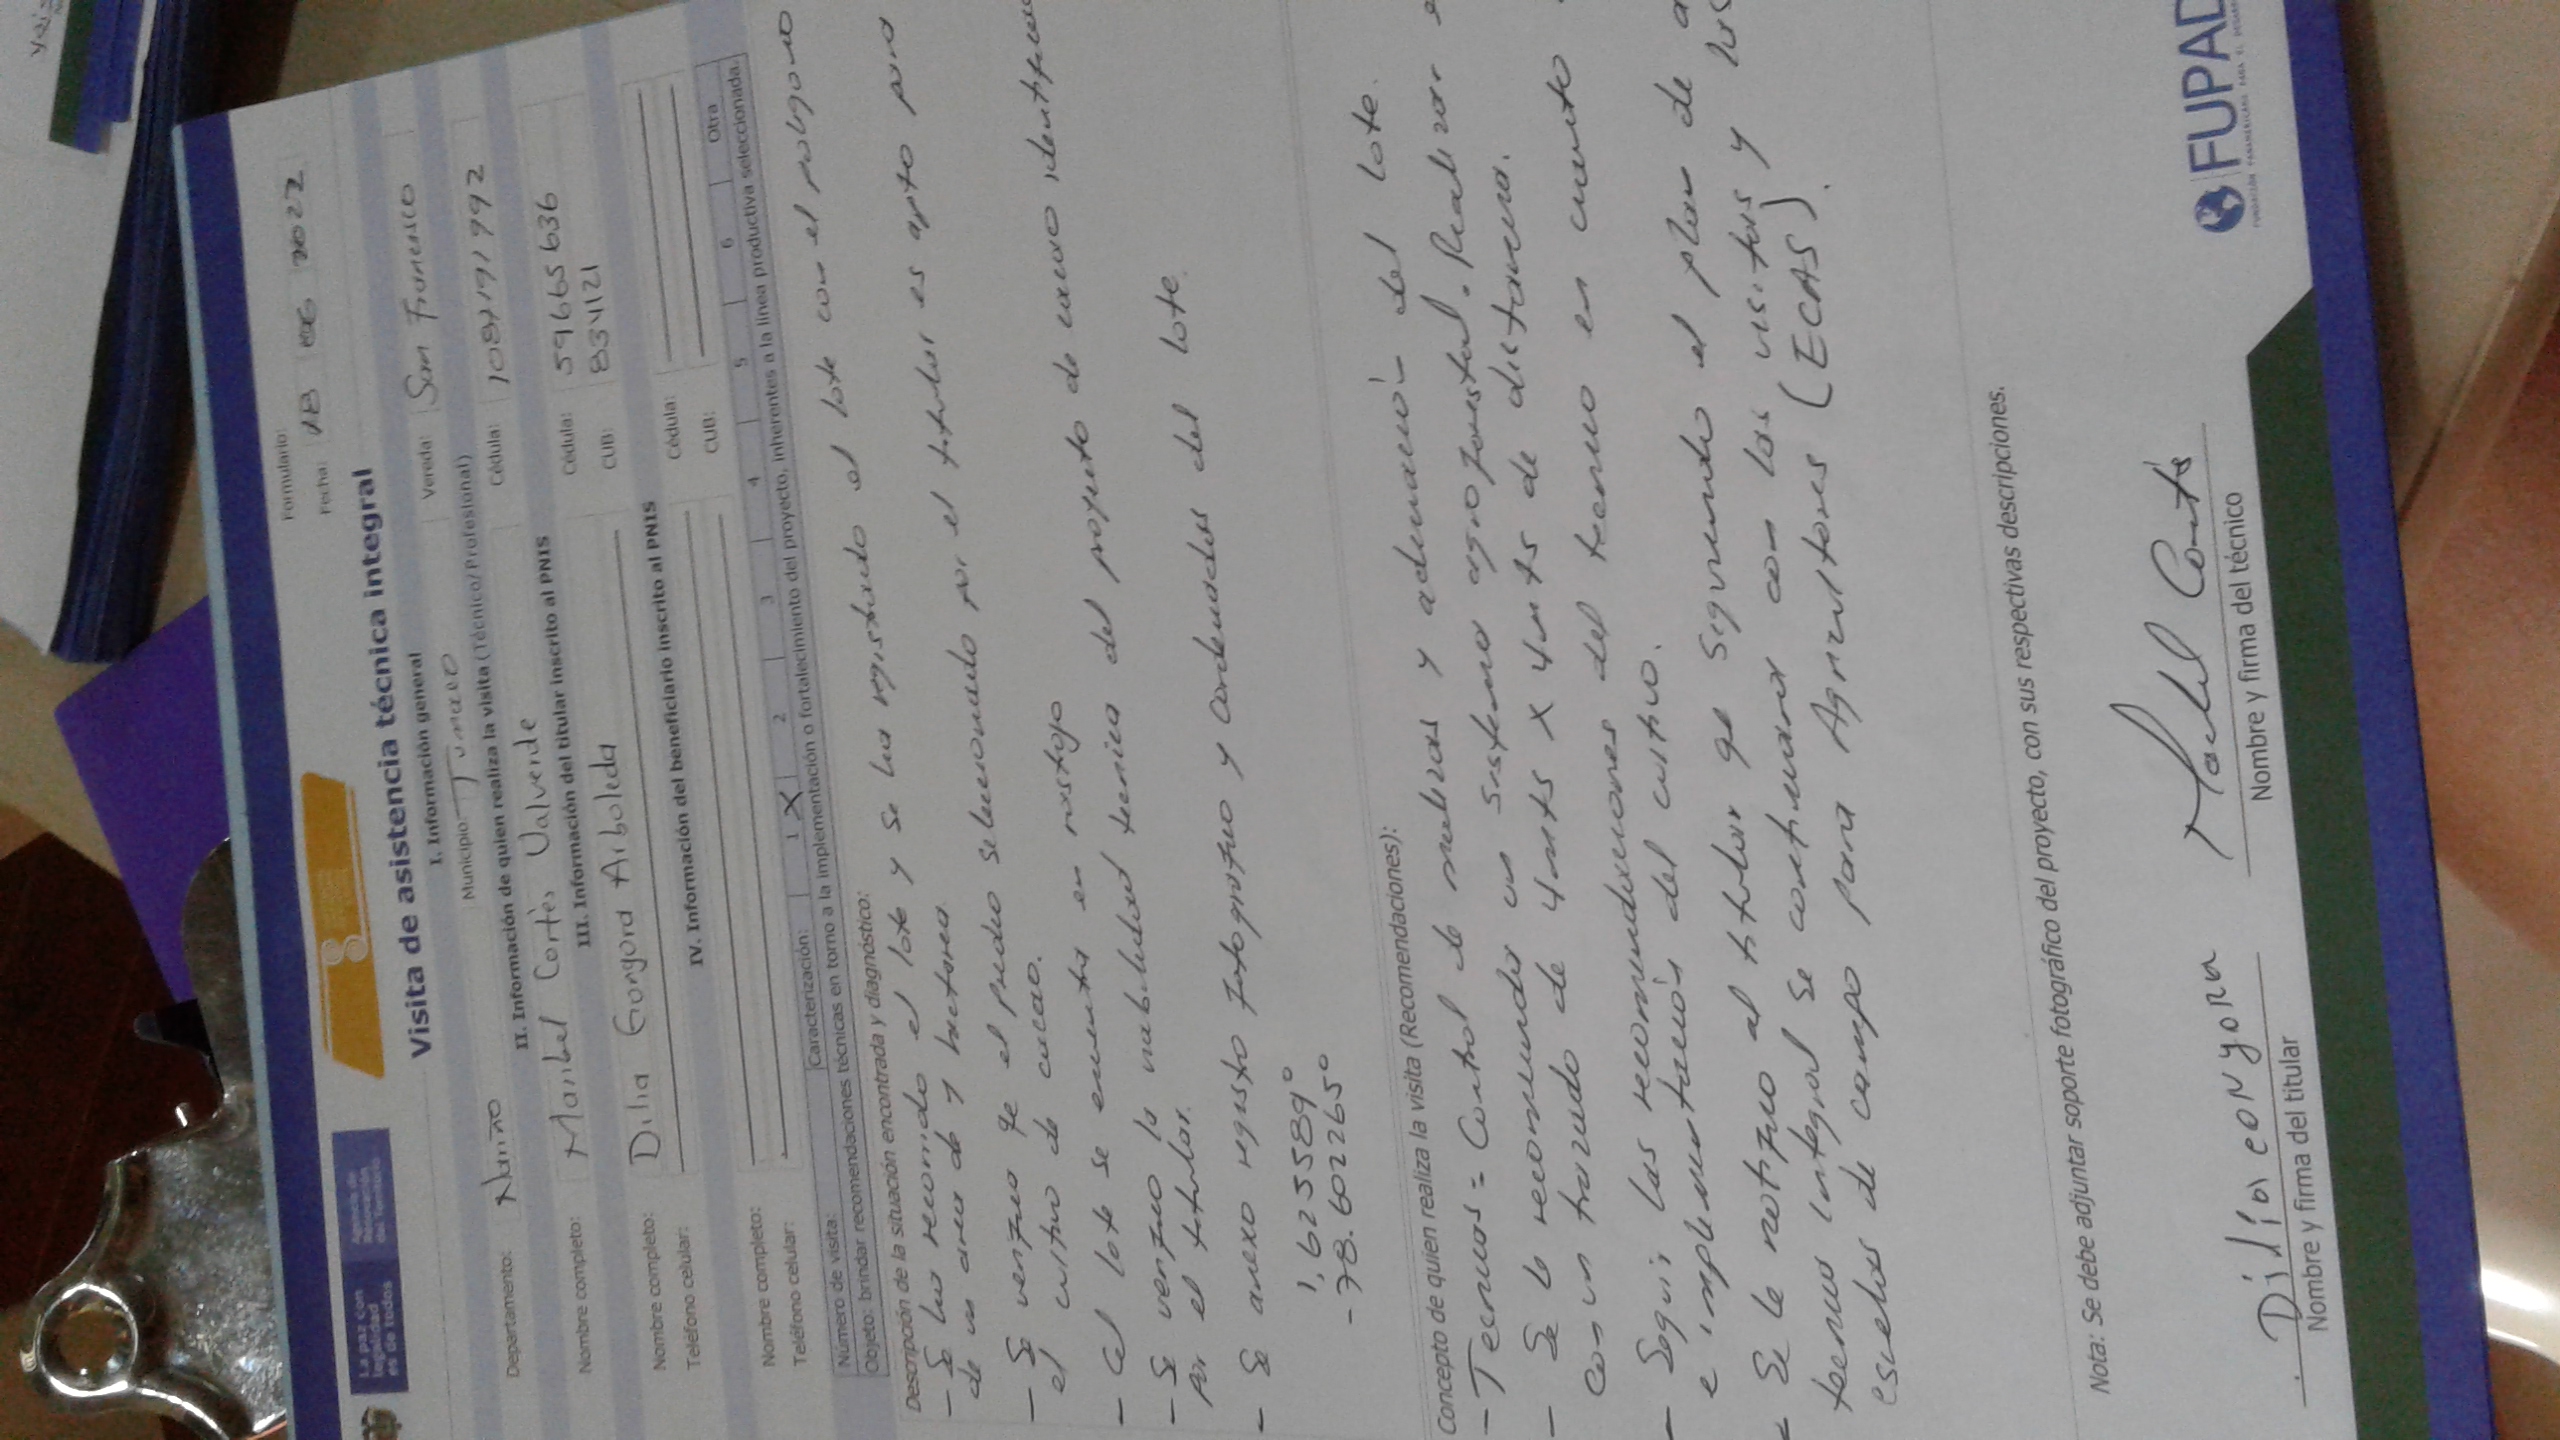 La paz con
legalidad
es de todos
Agencia de
Renovación
del Territorio
Formulario:
Fecha: 18 06 2022
Visita de asistencia técnica integral
I. Información general
Departamento: Nariño Municipio Tumaco Vereda: San Francisco
II. Información de quien realiza la visita (Técnico/Profesional)
Nombre completo: Maribel Cortés Valverde Cédula: 1087191992
III. Información del titular inscrito al PNIS
Nombre completo: Dilia Gongora Arboleda Cédula: 59665636
Teléfono celular: CUB: 834121
IV. Información del beneficiario inscrito al PNIS
Nombre completo: Cédula:
Teléfono celular: CUB:
Número de visita: Caracterización: 1 X 2 3 4 5 6 Otra
Objeto: brindar recomendaciones técnicas en torno a la implementación o fortalecimiento del proyecto, inherentes a la línea productiva seleccionada.
Descripción de la situación encontrada y diagnóstico:
- Se hizo recorrido el lote y se ha registrado el lote con el poligono
de un area de y hectarea.
- Se verifico qe el predio seleccionado por el titular es apto para
el cultivo de cacao.
- El lote se encuentra en rastrojo
- Se verifico la viabilidad tecnica del proyecto de cacao
por el titular.
- Se anexo registo fotografico y cordenadas del lote.
1,6255889°
-78.6022650
Concepto de quien realiza la visita (Recomendaciones):
- Tecnicos = Control de malezas y adecuación del lote.
- Se le recomienda un sistema agroforestal. Realizar
con un trazado de 4 mts x 4 mts de distancia.
- Seguir las recomendaciones del tecnico en cuanto
e implementación del cultivo.
- Se le notifico al titular qe siguiendo el plan de
tecnica integral se continuara con las visitas y las
escuelas de campo para Agricultores (ECAS).
Nota: Se debe adjuntar soporte fotográfico del proyecto, con sus respectivas descripciones.
Dilia GONGORA
Nombre y firma del titular
Maribel Cortés
Nombre y firma del técnico
FUPAD